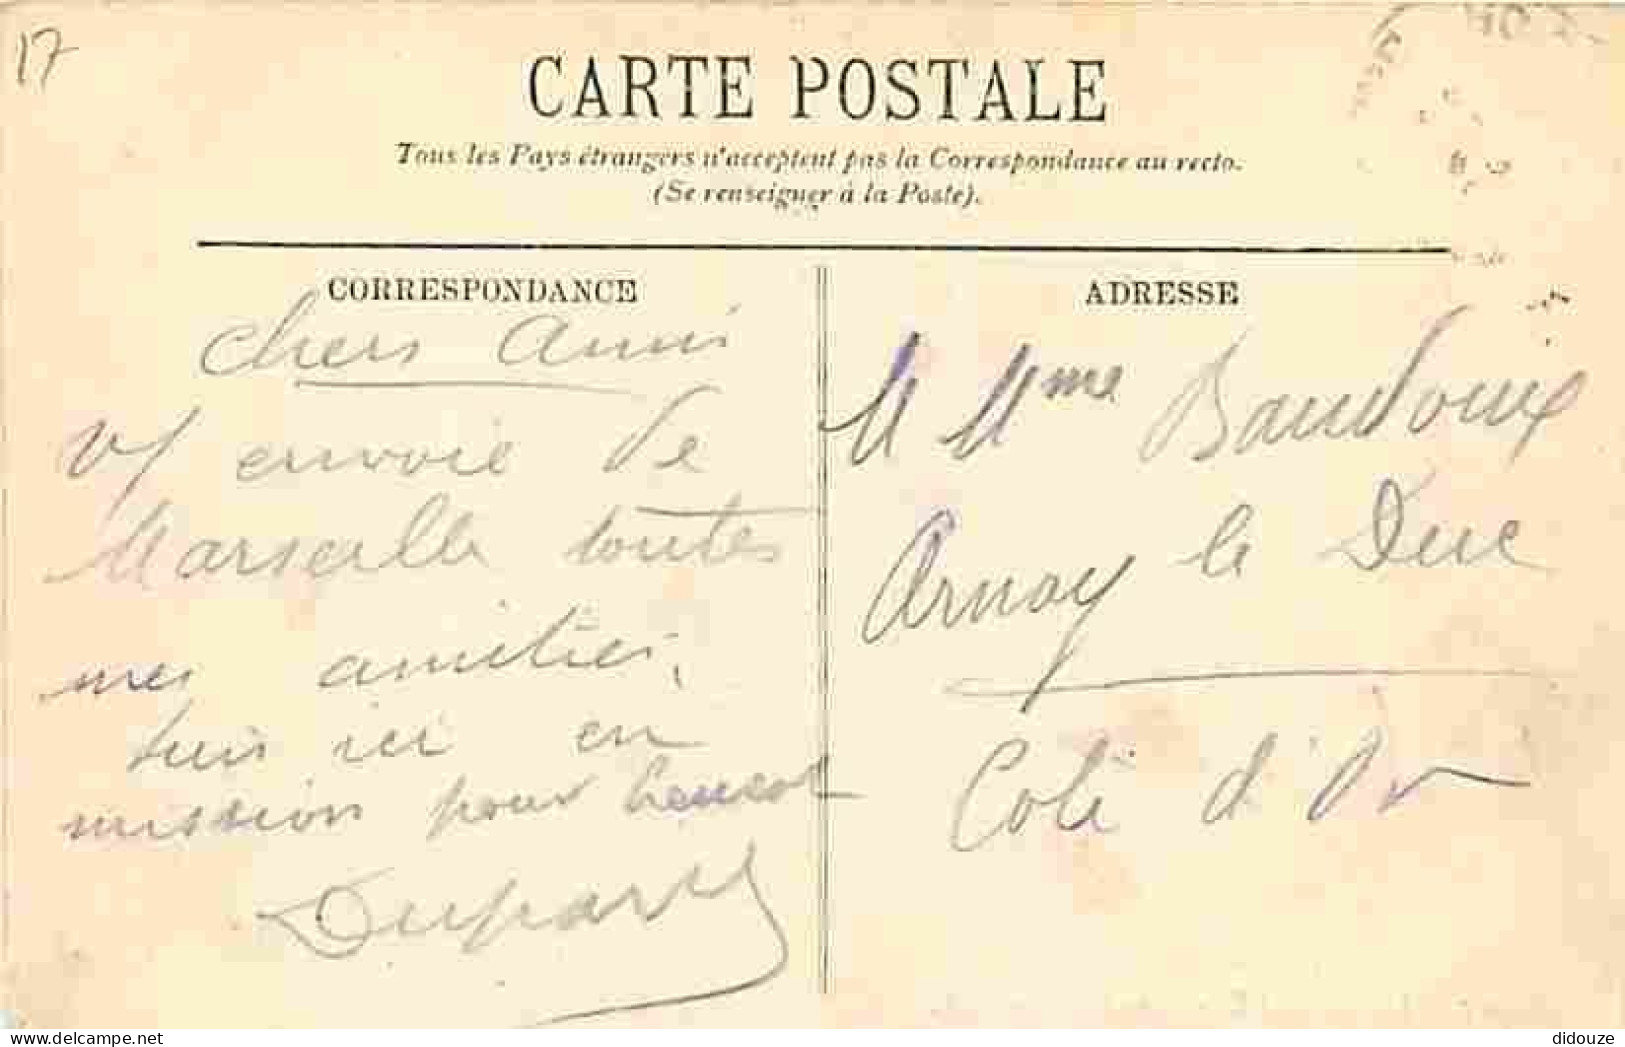 17
CARTE POSTALE
Tous les Pays étrangers n'acceptent pas la Correspondance au recto.
(Se renseigner à la Poste).
CORRESPONDANCE
Chers Amis
envoie de
Marseille toutes
mes amitiés,
suis ici en
mission pour
ADRESSE
M Mme Baudouix
Arnay le Duc
Cote d'Or
delcampe.net
didouze